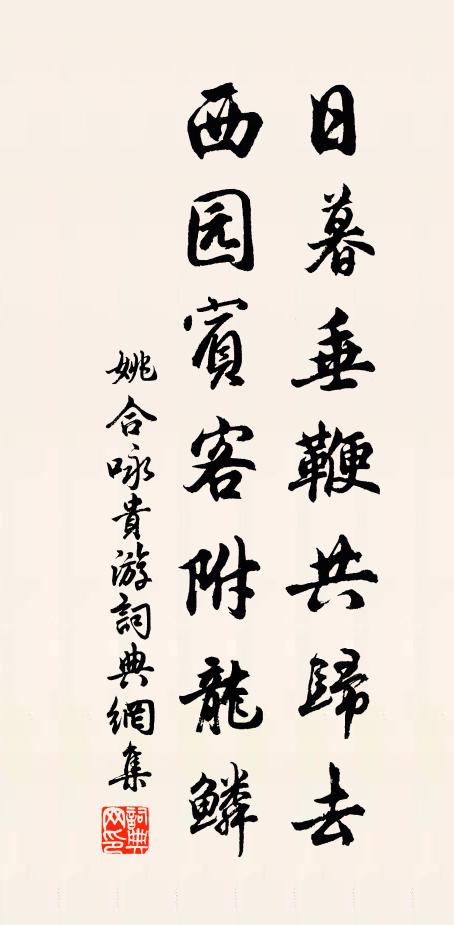 日暮垂鞭共歸去
西园賓客附龍鱗
姚合咏貴游詞典網集
詞典